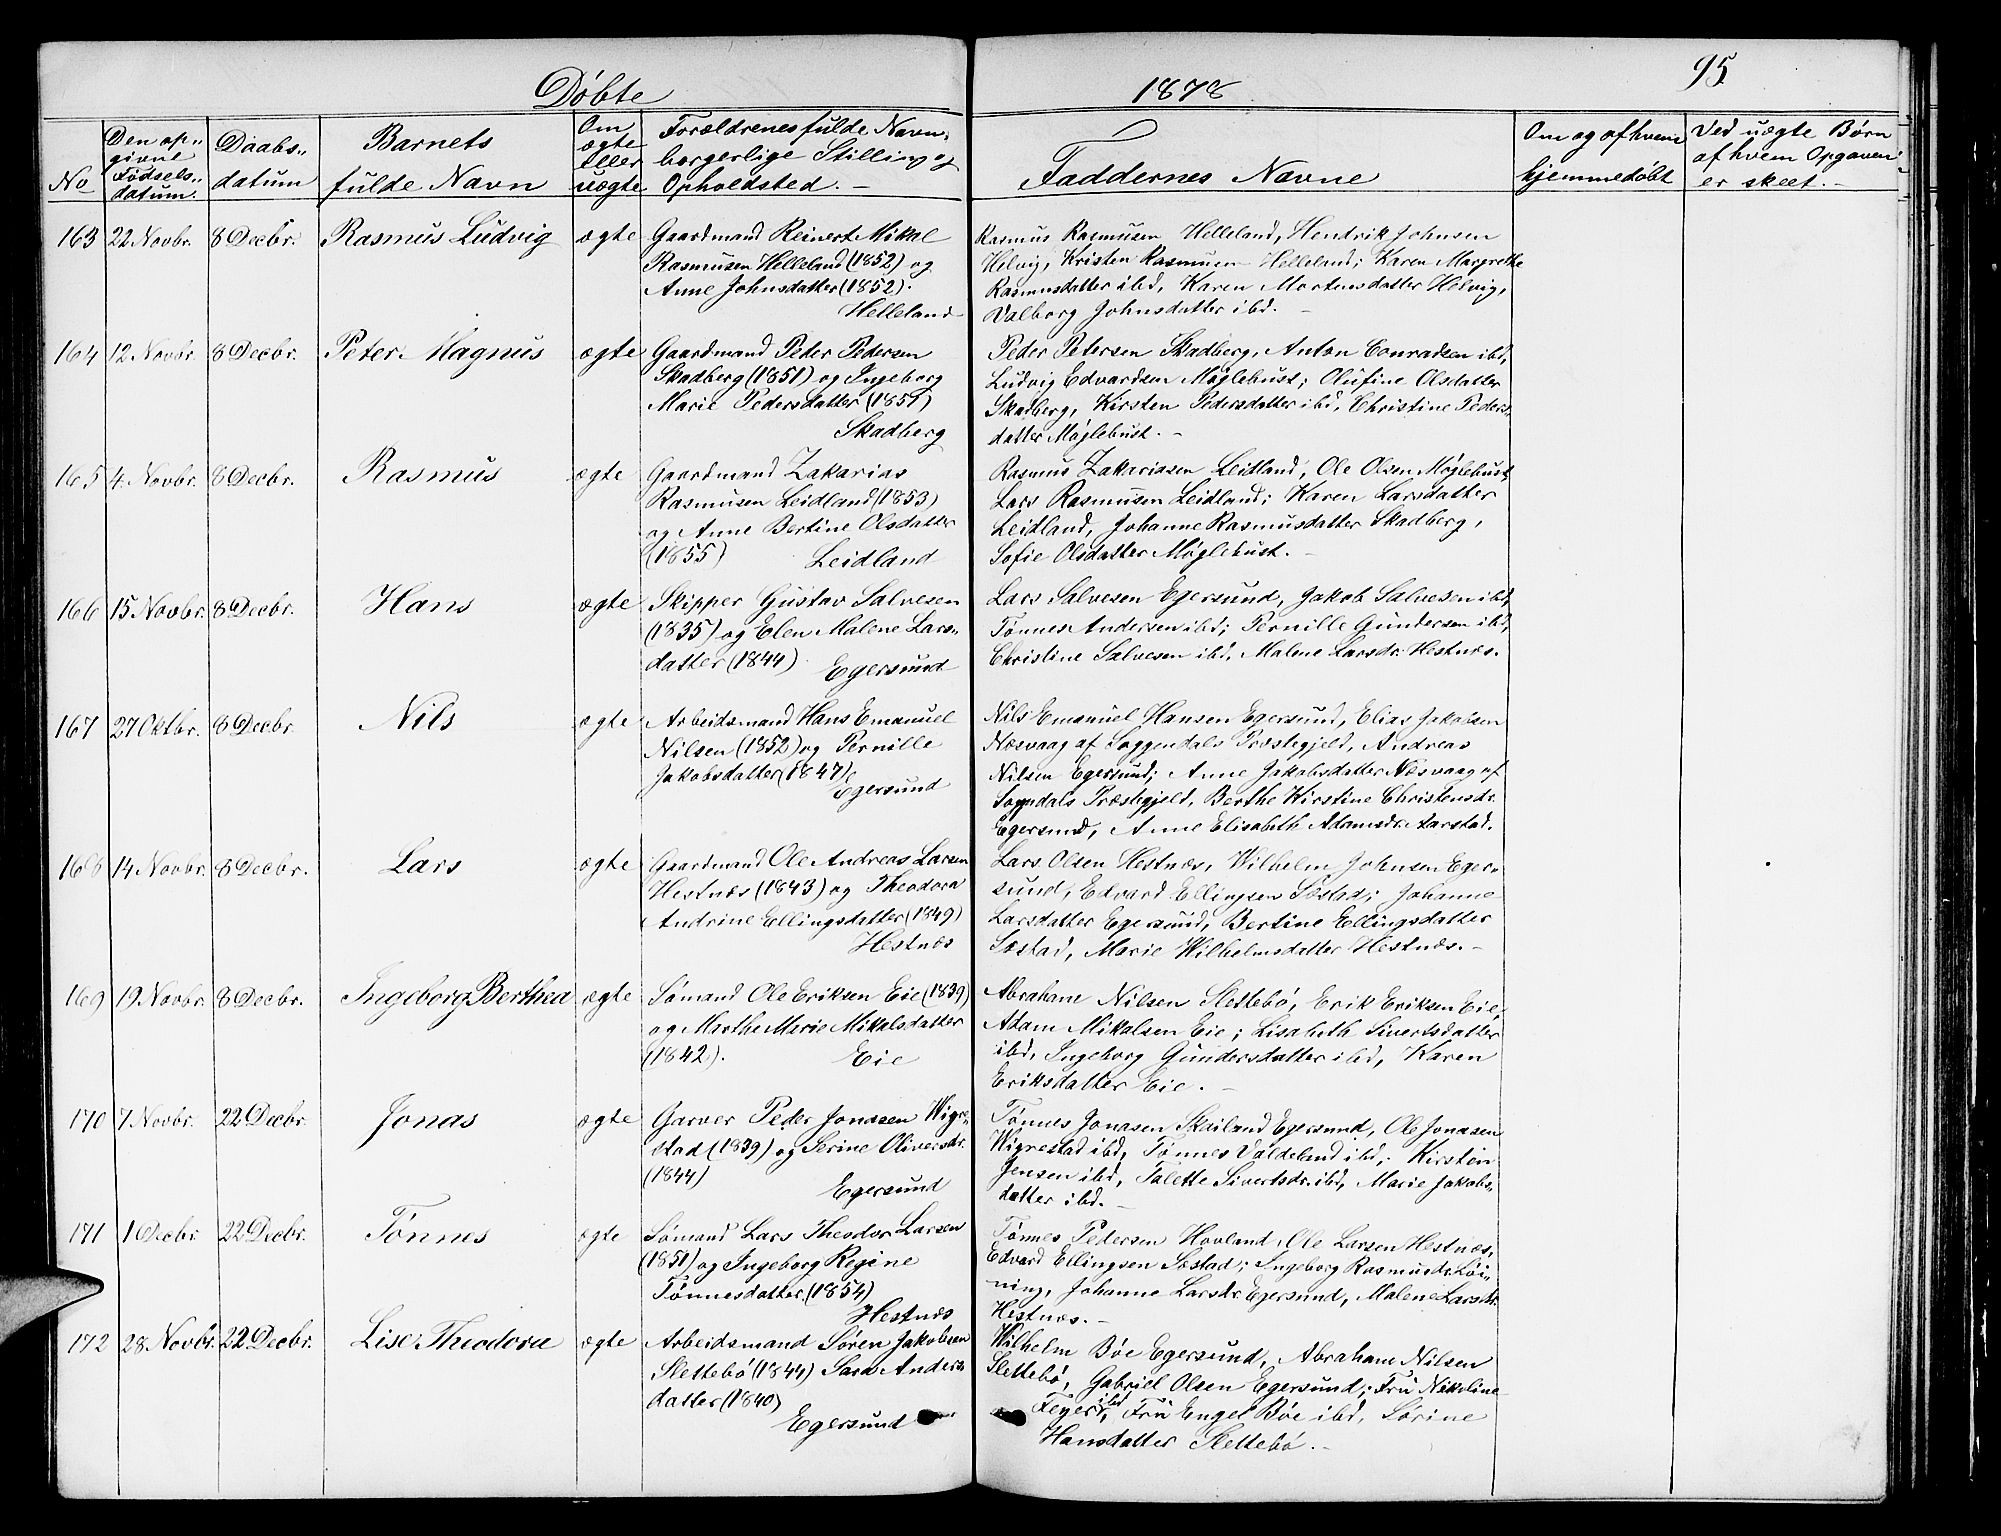 95
Døbte 1878
No
Den op-
givne
Fødsels-
datum.
Daabs-
datum
Barnets
fulde Navn
Om
ægte
eller
uægte
Forældrenes fulde Navn,
borgerlige Stilling og
Opholdsted. -
Faddernes Navne
Om og af hvem
hjemmedøbt
Ved uægte Børn
af hvem Opgaven
er skeet. -
163 22 Novbr. 8 Decbr. Rasmus Ludvig ægte Gaardmand Reinert Mikal
Rasmusen Helleland (1852) og
Anne Johnsdatter (1852).
Helleland
Rasmus Rasmusen Helleland, Hendrik Johnsen
Helvig, Kristen Rasmusen Helleland; Karen Margrethe
Rasmusdatter ibd, Karen Mortensdatter Helvig,
Valborg Johnsdatter ibd. -
164 12 Novbr. 8 Decbr. Peter Magnus ægte Gaardmand Peder Pedersen
Skadberg (1851) og Ingeborg
Marie Pedersdatter (1851)
Skadberg
Peder Petersen Skadberg, Anton Conradsen ibd,
Ludvig Edvardsen Møglebust; Olufine Olsdatter
Skadberg, Kirsten Pedersdatter ibd, Christine Peders-
datter Møglebust. -
165 4. Novbr. 8 Decbr. Rasmus ægte Gaardmand Zakarias
Rasmusen Leidland (1853)
og Anne Bertine Olsdatter
(1855) Leidland
Rasmus Zakariasen Leidland, Ole Olsen Møglebust,
Lars Rasmusen Leidland; Karen Larsdatter
Leidland, Johanne Rasmusdatter Skadberg,
Sofie Olsdatter Møglebust. -
166 15 Novbr. 8 Decbr. Hans ægte Skipper Gustav Salvesen
(1835) og Elen Malene Lars-
datter (1844) Egersund
Lars Salvesen Egersund, Jakob Salvesen ibd,
Tønnes Andersen ibd; Pernille Gundersen ibd,
Christine Salvesen ibd, Malene Larsdr. Hestnæs.
167 27 Oktbr. 8 Decbr. Nils ægte Arbeidsmand Hans Emanuel
Nilsen (1852) og Pernille
Jakobsdatter (1847)
Egersund
Nils Emanuel Hansen Egersund, Elias Jakobsen
Næsvaag af Soggendals Præstegjeld, Andreas
Nilsen Egersund; Anne Jakobsdatter Næsvaag af
Sogndals Præstegjeld, Berthe Kirstine Christensdr.
Egersund, Anne Elisabeth Adamsdr. Aarstad.
168 14 Novbr. 8 Decbr. Lars ægte Gaardmand Ole Andreas Larsen
Hestnæs (1843) og Theodora
Andrine Ellingsdatter (1849)
Hestnæs
Lars Olsen Hestnæs, Wilhelm Johnsen Eger-
sund, Edvard Ellingsen Sæstad; Johanne
Larsdatter Egersund, Bertine Ellingsdatter
Sæstad, Marie Wilhelmsdatter Hestnæs. -
169 19 Novbr. 8 Decbr. Ingeborg Berthea ægte Sømand Ole Eriksen Eie (1839)
og Marthe Marie Mikalsdatter
(1842). Eie
Abraham Nilsen Slettebø, Erik Eriksen Eie,
Adam Mikalsen Eie; Lisabeth Sivertsdatter
ibd, Ingeborg Gundersdatter ibd, Karen
Eriksdatter Eie. -
170 7 Novbr. 22 Decbr. Jonas ægte Garver Peder Jonasen Wigre-
stad (1839) og Serine Oliversdr.
(1844) Egersund
Tønnes Jonasen Skailand Egersund, Ole Jonasen
Wigrestad ibd, Tønnes Valdeland ibd; Kirsten
Jensen ibd, Talette Sivertsdr. ibd, Marie Jakobs-
datter ibd. -
171 1 Decbr. 22 Decbr. Tønnes ægte Sømand Lars Theodor Larsen
(1851) og Ingeborg Regine
Tønnesdatter (1854)
Hestnæs
Tønnes Pedersen Hovland, Ole Larsen Hestnæs,
Edvard Ellingsen Sæstad; Ingeborg Rasmusdr. Løi-
ning, Johanne Larsdr. Egersund, Malene Larsdr.
Hestnæs. -
172 28 Novbr. 22 Decbr. Lise Theodora ægte Arbeidsmand Søren Jakobsen
Slettebø (1844) Sara Anders-
datter (1840)
Egersund
Wilhelm Bøe Egersund, Abraham Nilsen
Slettebø, Gabriel Olsen Egersund; Fru Nikoline
Feyer ibd, Fru Engel Bøe ibd, Sørine
Hansdatter Slettebø. -